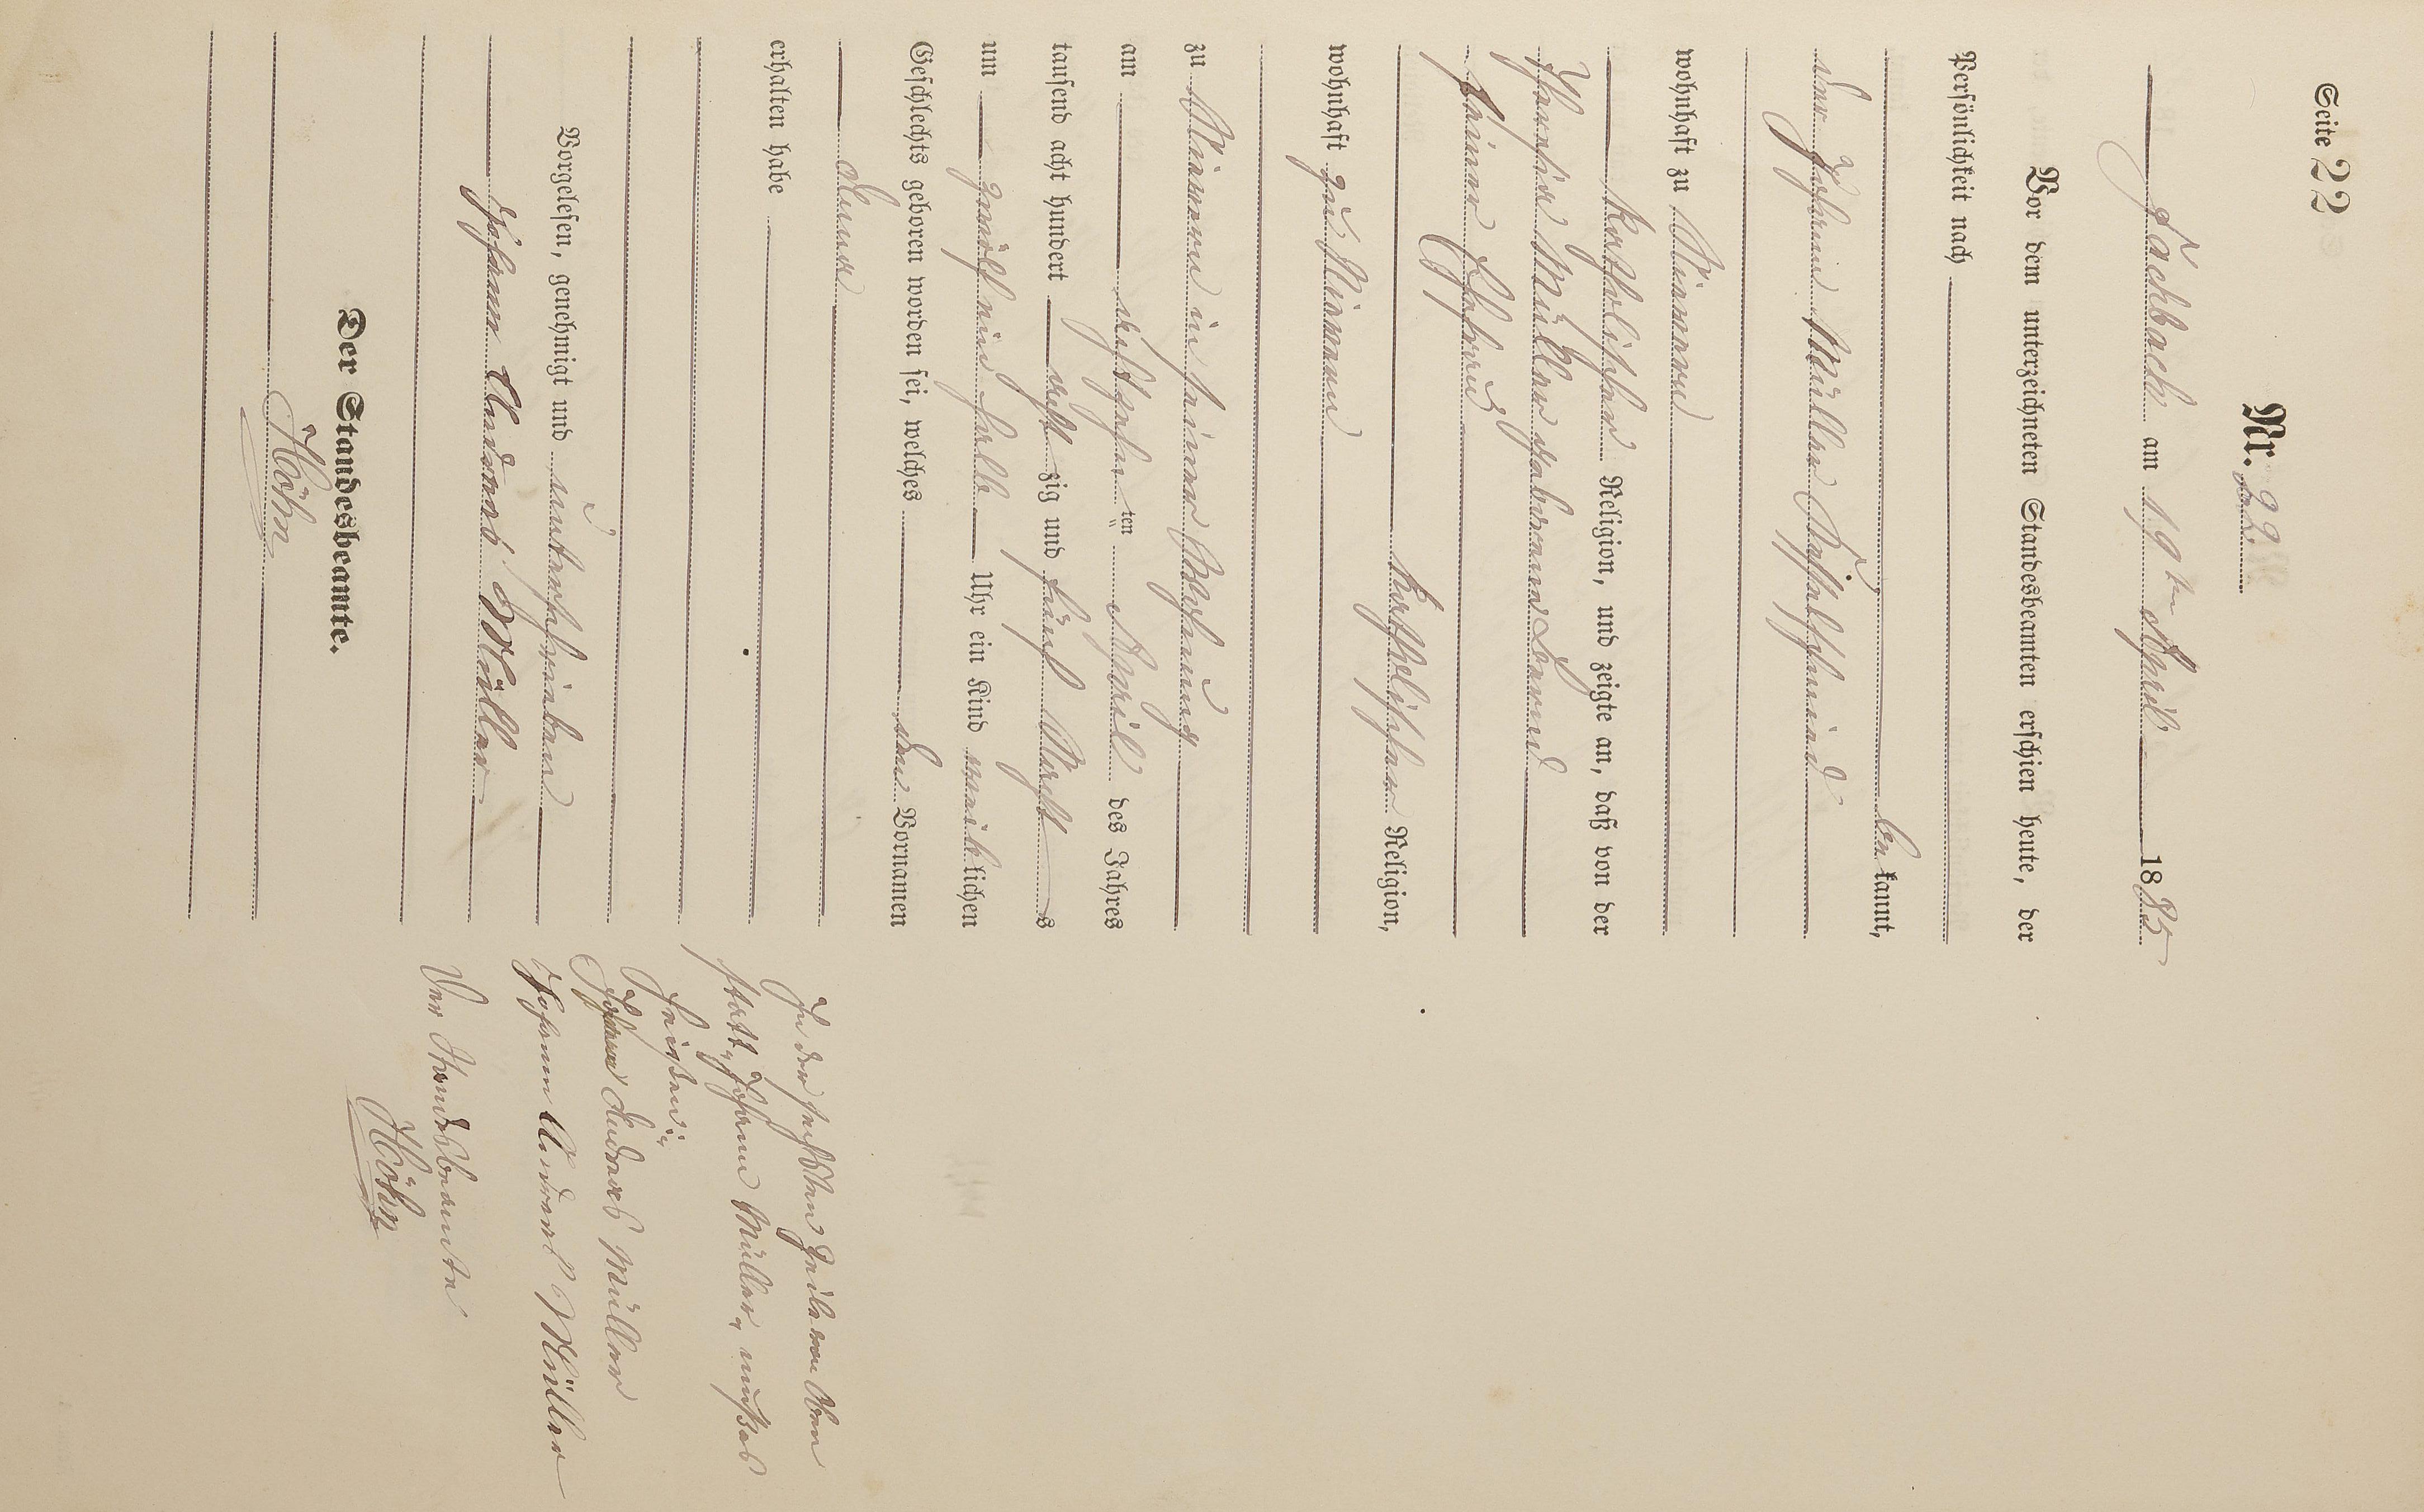 Seite 22
Nr. 22.
Fachbach am 19ten April 1885
Vor dem unterzeichneten Standesbeamten erschien heute, der
Persönlichkeit nach
bekannt,
der Johann Müller
wohnhaft zu Nievern
katholischer Religion, und zeigte an, daß von der
Müller geborene
seiner Ehefrau
katholischer Religion,
wohnhaft zu Nievern
zu Nievern in seiner Wohnung
am achtzehnten April des Jahres
tausend acht hundert achtzig und fünf Nachts
um zwölf ein halb Uhr ein Kind weiblichen
Geschlechts geboren worden sei, welches den Vornamen
Anna
erhalten habe
Vorgelesen, genehmigt und unterschrieben
Johann Andreas Müller
Der Standesbeamte.
Höhn
In der sechsten Zeile von Oben
statt „Johann Müller„ muß es
heißen:
Johann Andreas Müller
Johann Andreas Müller
Der Standesbeamte
Höhn